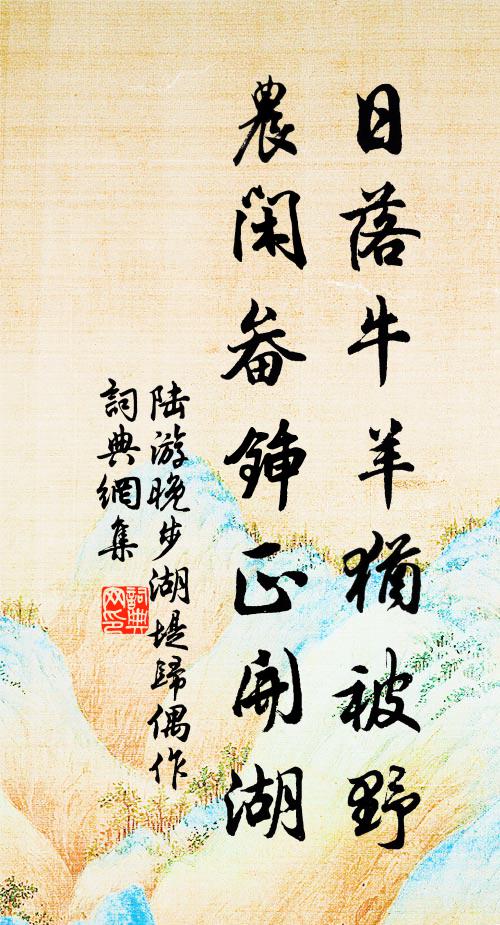 日落牛羊猶被野
農閑畚鍤正開湖
陸游晚步湖堤歸偶作
詞典網集
詞典
网印